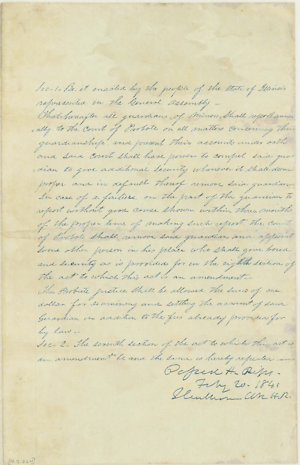 Sec. 1. Be it enacted by the people of the state of Illinois
represented in the General Assembly—
That hereafter all guardians of minors shall report annu-
ally to the Court of Probate on all matters concerning their
guardianship and present their account under oath
and said Court shall have power to compel said guar-
dian to give additional security whenever it shall deem
proper and in default thereof remove said guardian
In case of a failure on the part of the guardian to
report without good cause shown within three months
of the proper time of making such report the Court
of Probate shall remove said guardian and appoint
some other person in his place who shall give bond
and security as is provided for in the eighth section of
the act to which this act is an amendment.
The Probate justice shall be allowed the sum of one
dollar for examining and settling the account of said
Guardian in addition to the fees already provided for
by law—
Sec. 2. The seventh section of the act to which this act is
an amendment be and the same is hereby repealed
Passed H. Reps.
Feby 20. 1841
Clk H.R.